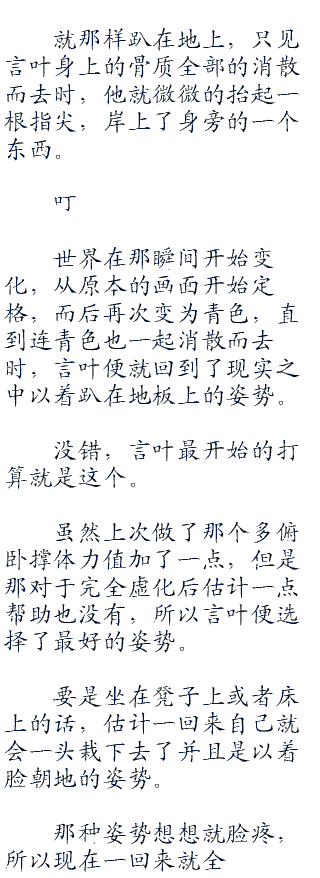 就那样趴在地上，只见
言叶身上的骨质全部的消散
而去时，他就微微的抬起一
根指尖，岸上了身旁的一个
东西。
叮
世界在那瞬间开始变
化，从原本的画面开始定
格，而后再次变为青色，直
到连青色也一起消散而去
时，言叶便就回到了现实之
中以着趴在地板上的姿势。
没错，言叶最开始的打
算就是这个。
虽然上次做了那个多俯
卧撑体力值加了一点，但是
那对于完全虚化后估计一点
帮助也没有，所以言叶便选
择了最好的姿势。
要是坐在凳子上或者床
上的话，估计一回来自己就
会一头栽下去了并且是以着
脸朝地的姿势。
那种姿势想想就脸疼，
所以现在一回来就全